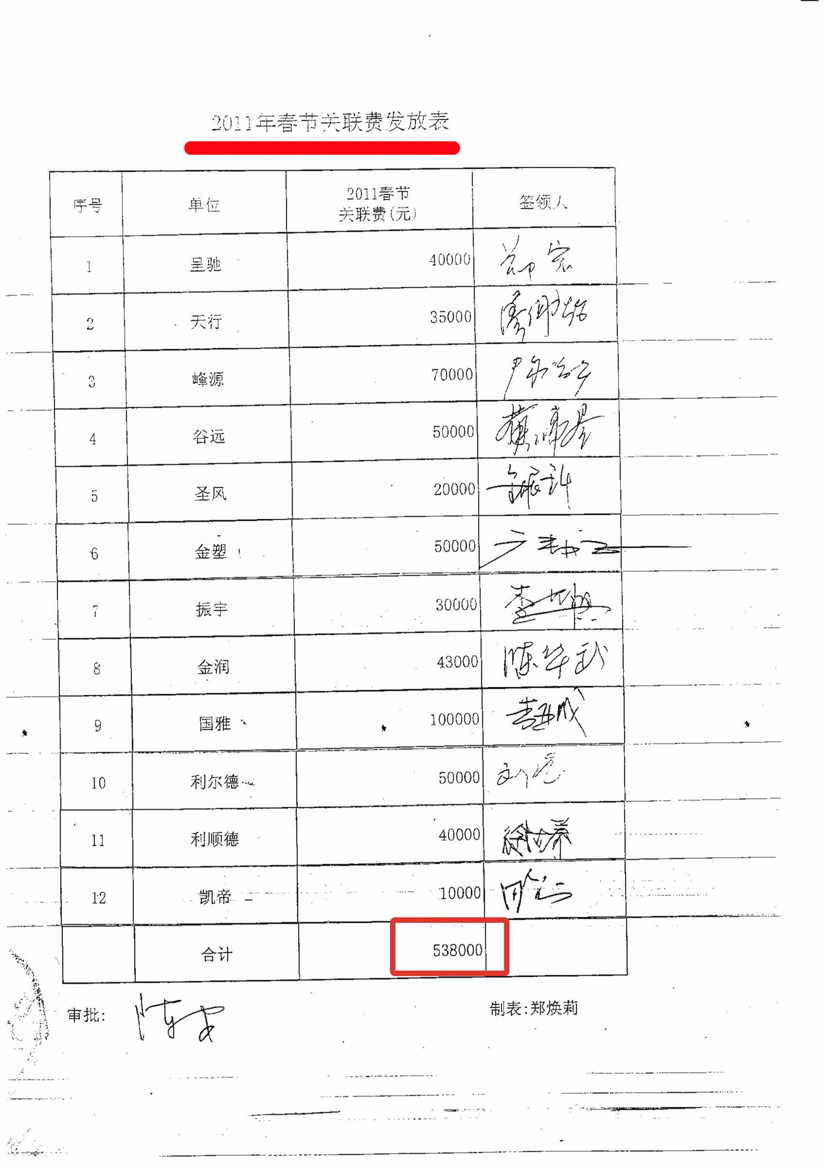 2011年春节关联费发放表
序号 单位 2011春节关联费(元) 签领人
1 呈驰 40000
2 天行 35000
3 峰源 70000
4 谷远 50000
5 圣风 20000
6 金塑 50000
7 振宇 30000
8 金润 43000 陈华
9 国雅 100000
10 利尔德 50000
11 利顺德 40000
12 凯帝 10000
合计 538000
审批: 制表:郑焕莉